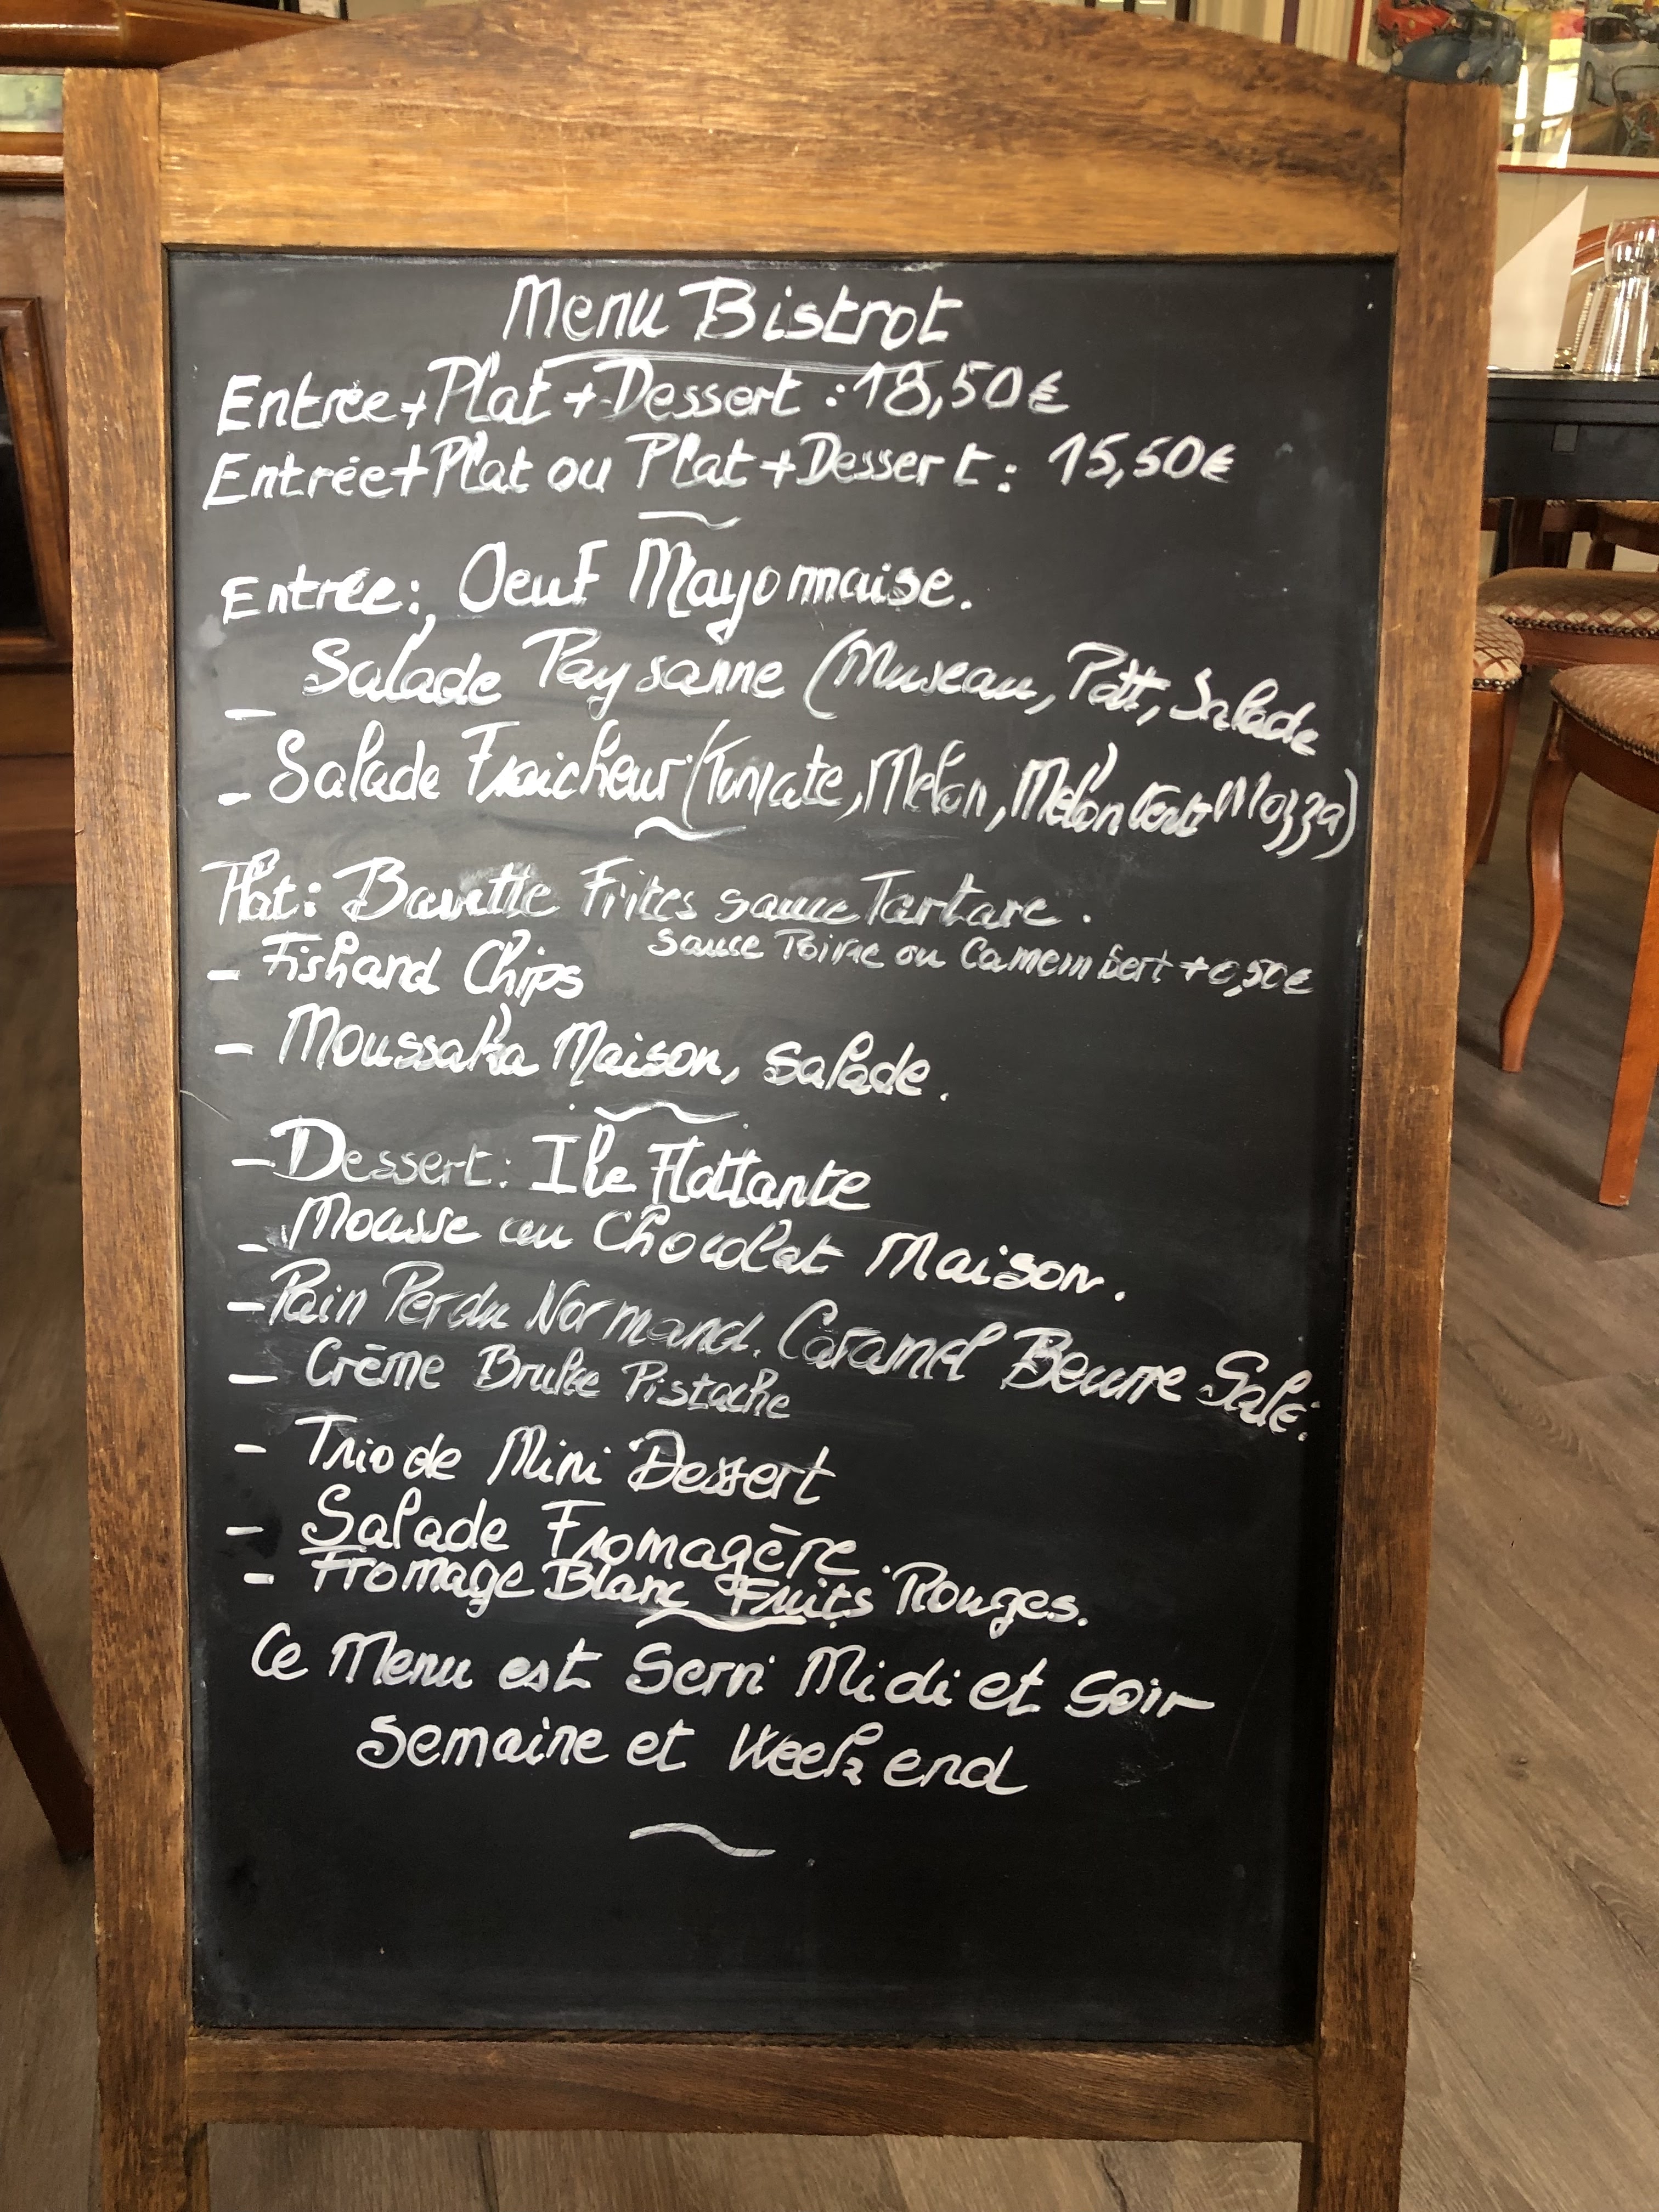 Menu Bistrot
Entrée+Plat+Dessert : 18,50€
Entrée+Plat ou Plat+Dessert : 15,50€
Entrée: Oeuf Mayonnaise.
_ Salade Paysanne (Museau, Pdt, Salade)
- Salade Fraicheur (Tomate, Melon, Melon Vert Mozza)
Plat: Bavette Frites sauce Tartare.
sauce Poivre ou Camembert +0,50€
- Fish and Chips
- Moussaka Maison, Salade.
- Dessert: Ile Flottante
- Mousse au Chocolat Maison.
- Pain Perdu Normand. Caramel Beurre Salé.
- Crème Brulée Pistache
- Trio de Mini Dessert
- Salade Fromagère.
- Fromage Blanc Fruits Rouges.
Ce Menu est Servi Midi et Soir
Semaine et Week end